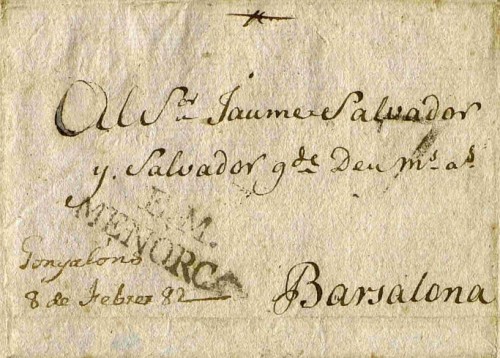 Al Sor Jaume Salvador
y Salvador gde Deu ms as
E.M.
MENORCA
Gonyalons
8 de Febrer 82
Barsalona